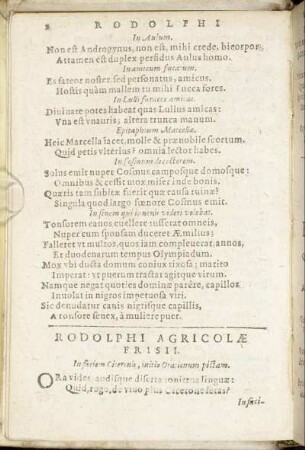 8 RODOLPHI
In Aulum.
Non est Androgynus, non est, mihi crede, bicorpor,
Attamen est duplex perfidus Aulus homo.
In amicum fucatum.
Es fateor noster, sed personatus, amicus.
Hostis quàm mallem tu mihi fucca fores.
In Lulli amicas.
Diuinate potes habeat quas Lullus amicas:
Vna est vnauris; altera trunca manum.
Epitaphium Marcellæ.
Heic Marcella iacet, molle & prænobile scortum.
Quid petis vlterius? omnia lector habes.
In Cosmum decoctorem.
Solus emit nuper Cosmus camposque domosque:
Omnibus & cessit mox miser inde bonis.
Quæris tam subitæ fuerit quæ causa ruinæ?
Singula quod largo fœnore Cosmus emit.
In senem qui iuuenis videri volebat.
Tonsorem canos euellere iusserat omneis,
Nuper eum sponsam duceret Æmilius;
Falleret vt multos, quos iam compleuerat, annos,
Et duodenarum tempus Olympiadum.
Mox vbi ducta domum coniux rixosa; marito
Imperat: vt puerum tractat agitque virum.
Namque negat quoties dominæ parêre, capillos
Inuolat in nigros impetuosa viri.
Sic denudatur canis nigrisque capillis,
A tonsore senex, à muliere puer.
RODOLPHI AGRICOLÆ
FRISII.
In faciem Ciceronis, initio Orationum pictam.
ORa vides, audisque diserta tonitrua linguæ:
Quid, rogo, de viuo plus Cicerone feras?
In faci-